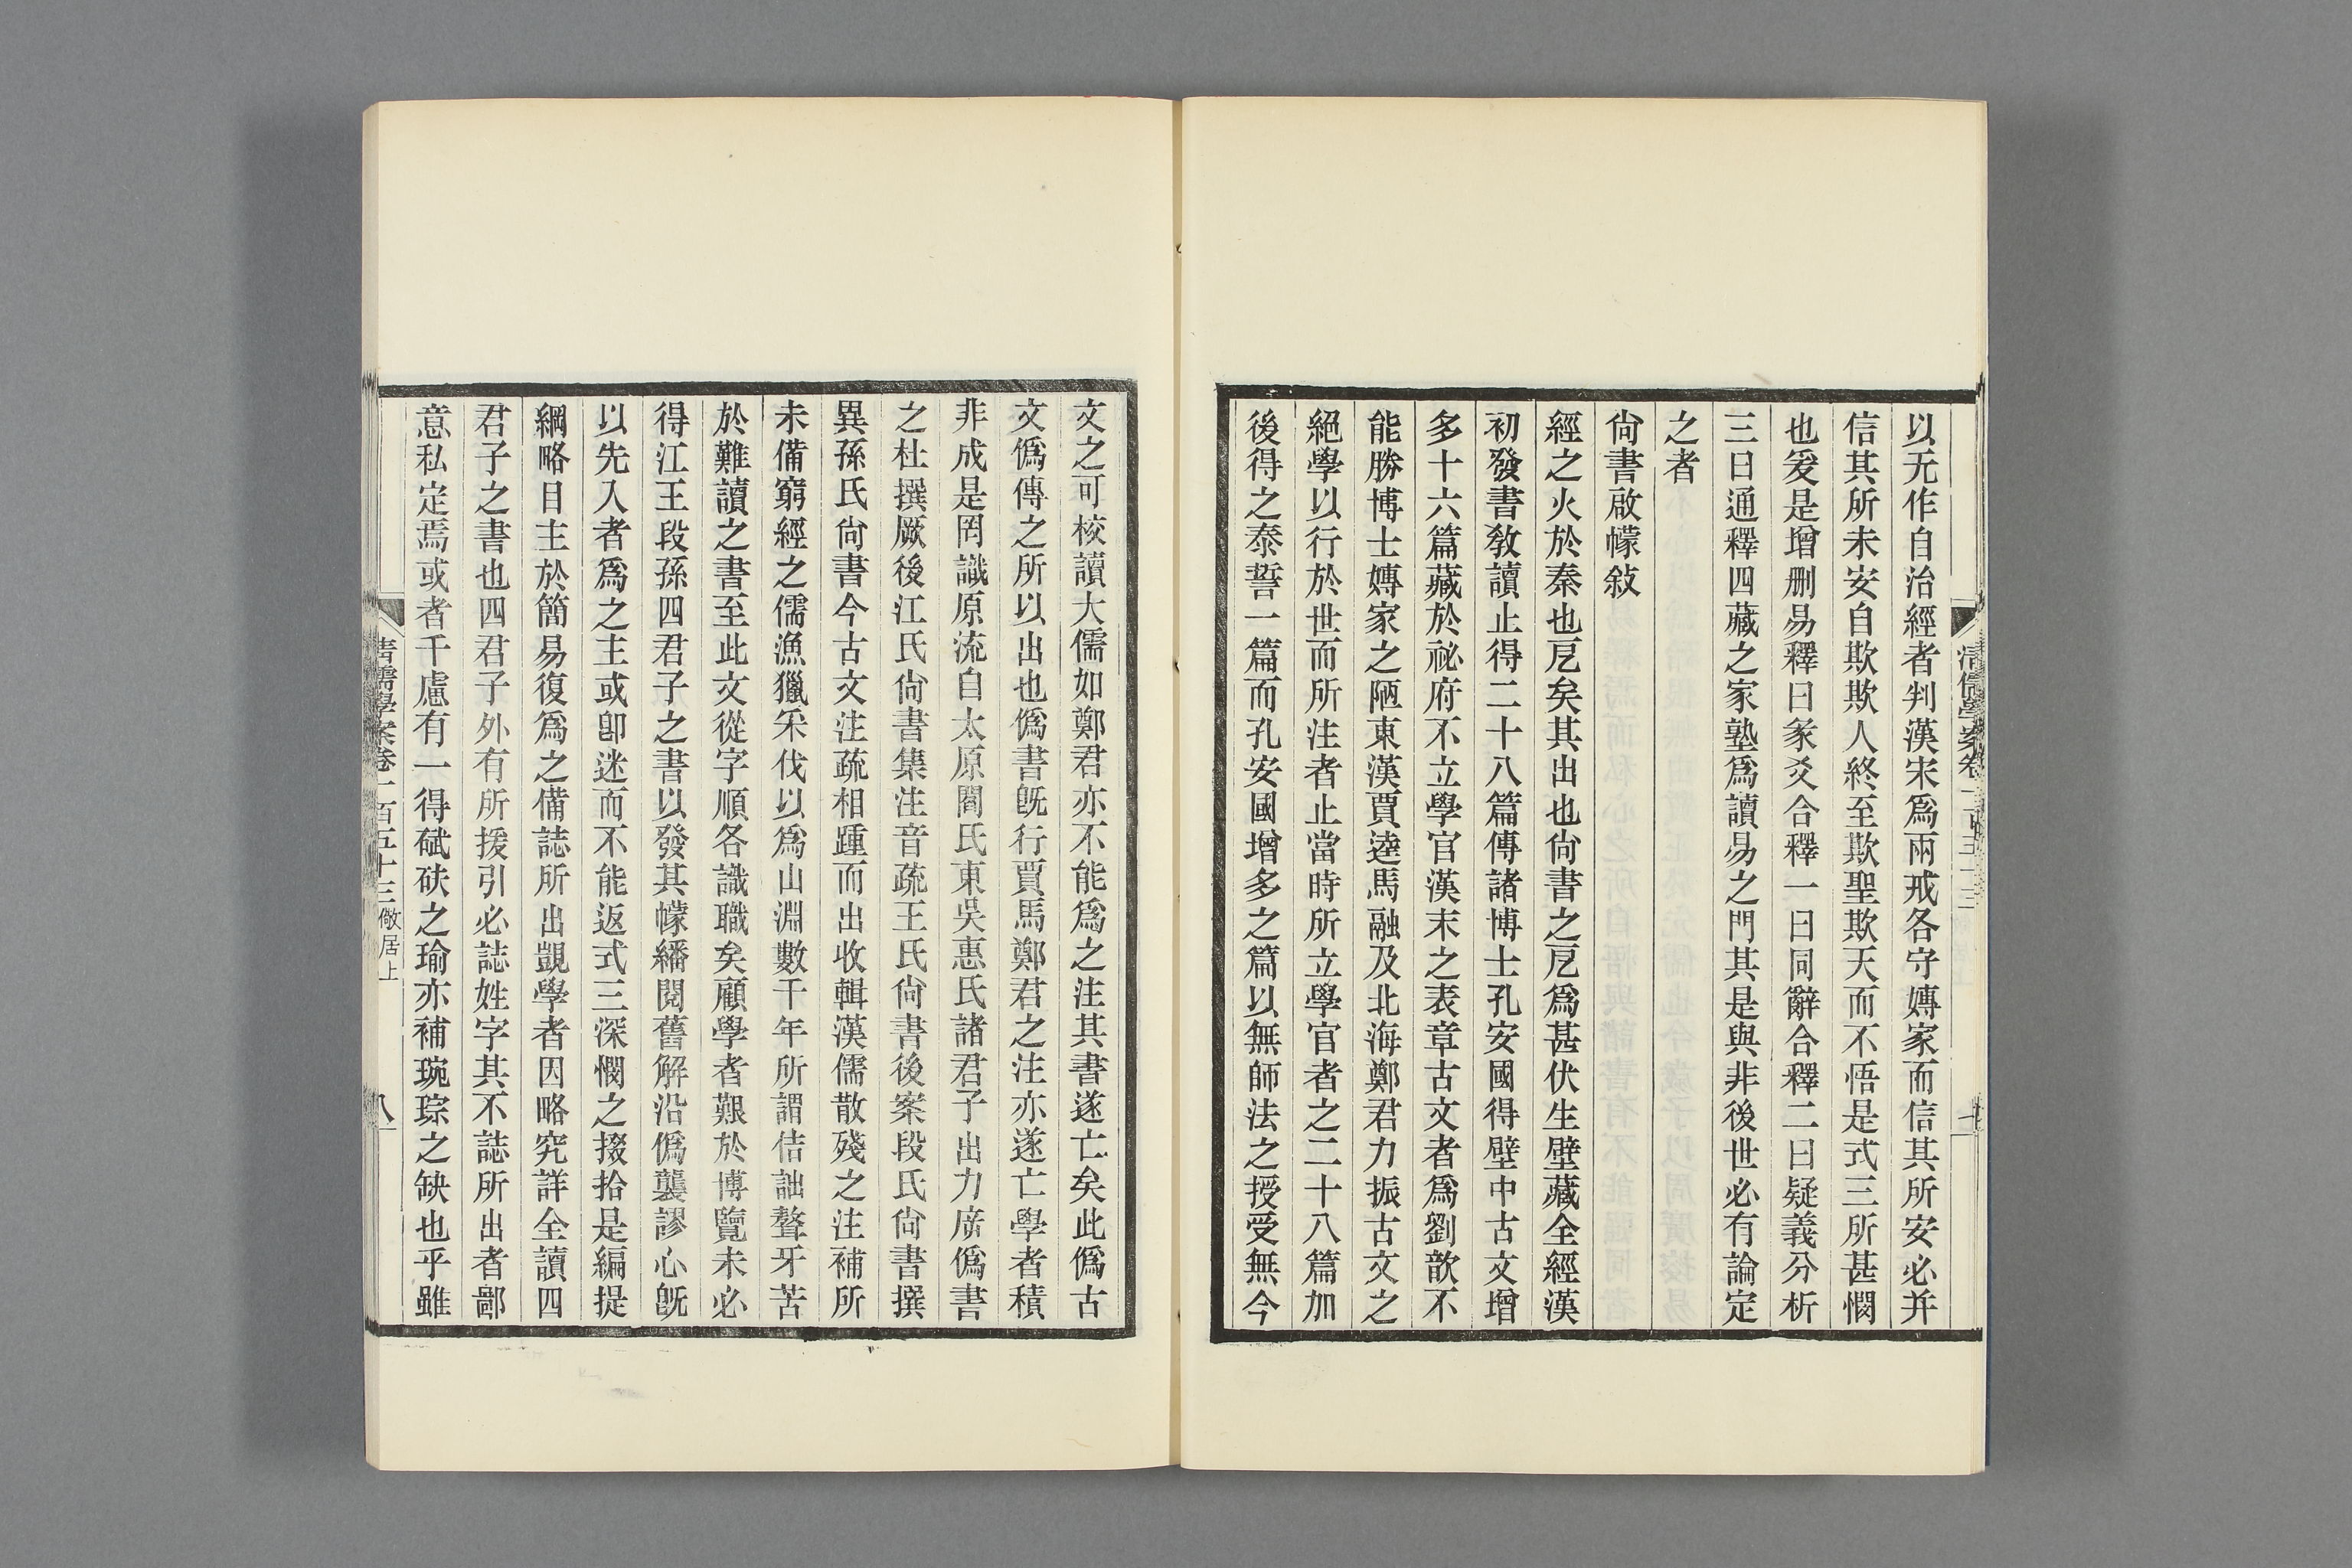 以无作自治經者判漢宋爲兩戒各守媾家而信其所安必并
信其所未安自欺欺人終至欺聖欺天而不悟是式三所甚憫
也爰是增删易釋曰彖爻合釋一曰同辭合釋二曰疑義分析
三曰通釋四藏之家塾爲讀易之門其是與非後世必有論定
之者
尙書啟幪敍
經之火於秦也戹矣其出也尙書之戹爲甚伏生壁藏全經漢
初發書敎讀止得二十八篇傳諸博士孔安國得壁中古文增
多十六篇藏於祕府不立學官漢末之表章古文者爲劉歆不
能勝博士嫥家之陋東漢賈逵馬融及北海鄭君力振古文之
絕學以行於世而所注者止當時所立學官者之二十八篇加
後得之泰誓一篇而孔安國增多之篇以無師法之授受無今
文之可校讀大儒如鄭君亦不能爲之注其書遂亡矣此僞古
文僞傳之所以出也僞書旣行賈馬鄭君之注亦遂亡學者積
非成是罔識原流自太原閻氏東吳惠氏諸君子出力㡿僞書
之杜撰厥後江氏尙書集注音疏王氏尙書後案段氏尙書撰
異孫氏尙書今古文注疏相踵而出收輯漢儒散殘之注補所
未備窮經之儒漁獵采伐以爲山淵數千年所謂佶詘聱牙苦
於難讀之書至此文從字順各識職矣顧學者艱於博覽未必
得江王段孫四君子之書以發其幪繙閱舊解沿僞襲謬心旣
以先入者爲之主或卽迷而不能返式三深憫之掇拾是編提
綱略目主於簡易復爲之備誌所出覬學者因略究詳全讀四
君子之書也四君子外有所援引必誌姓字其不誌所出者鄙
意私定焉或者千慮有一得碔砆之瑜亦補琬琮之缺也乎雖
清儒學案卷一百五十三 儆居上
八